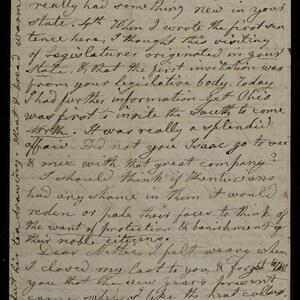 really had something new in your
State. 4th When I wrote the first sen
tence here, I thought this visiting
of legislatures originated in your
State, & that the first invitation was
from your legislative body. Today
I had further information yet Ohio
was first to invite the South to come
north. It was really a splendid
affair. Did not you Isaac go to see
& mix with that great company?
I should think if Kentucians
had any shame in them it would
redden or pale their faces to think of
the want of protection & banishment of
their noble citizens.
Dear Mother, I felt weary when
I closed my last to you & forgot to tell
you that the new years present
came
like the heat